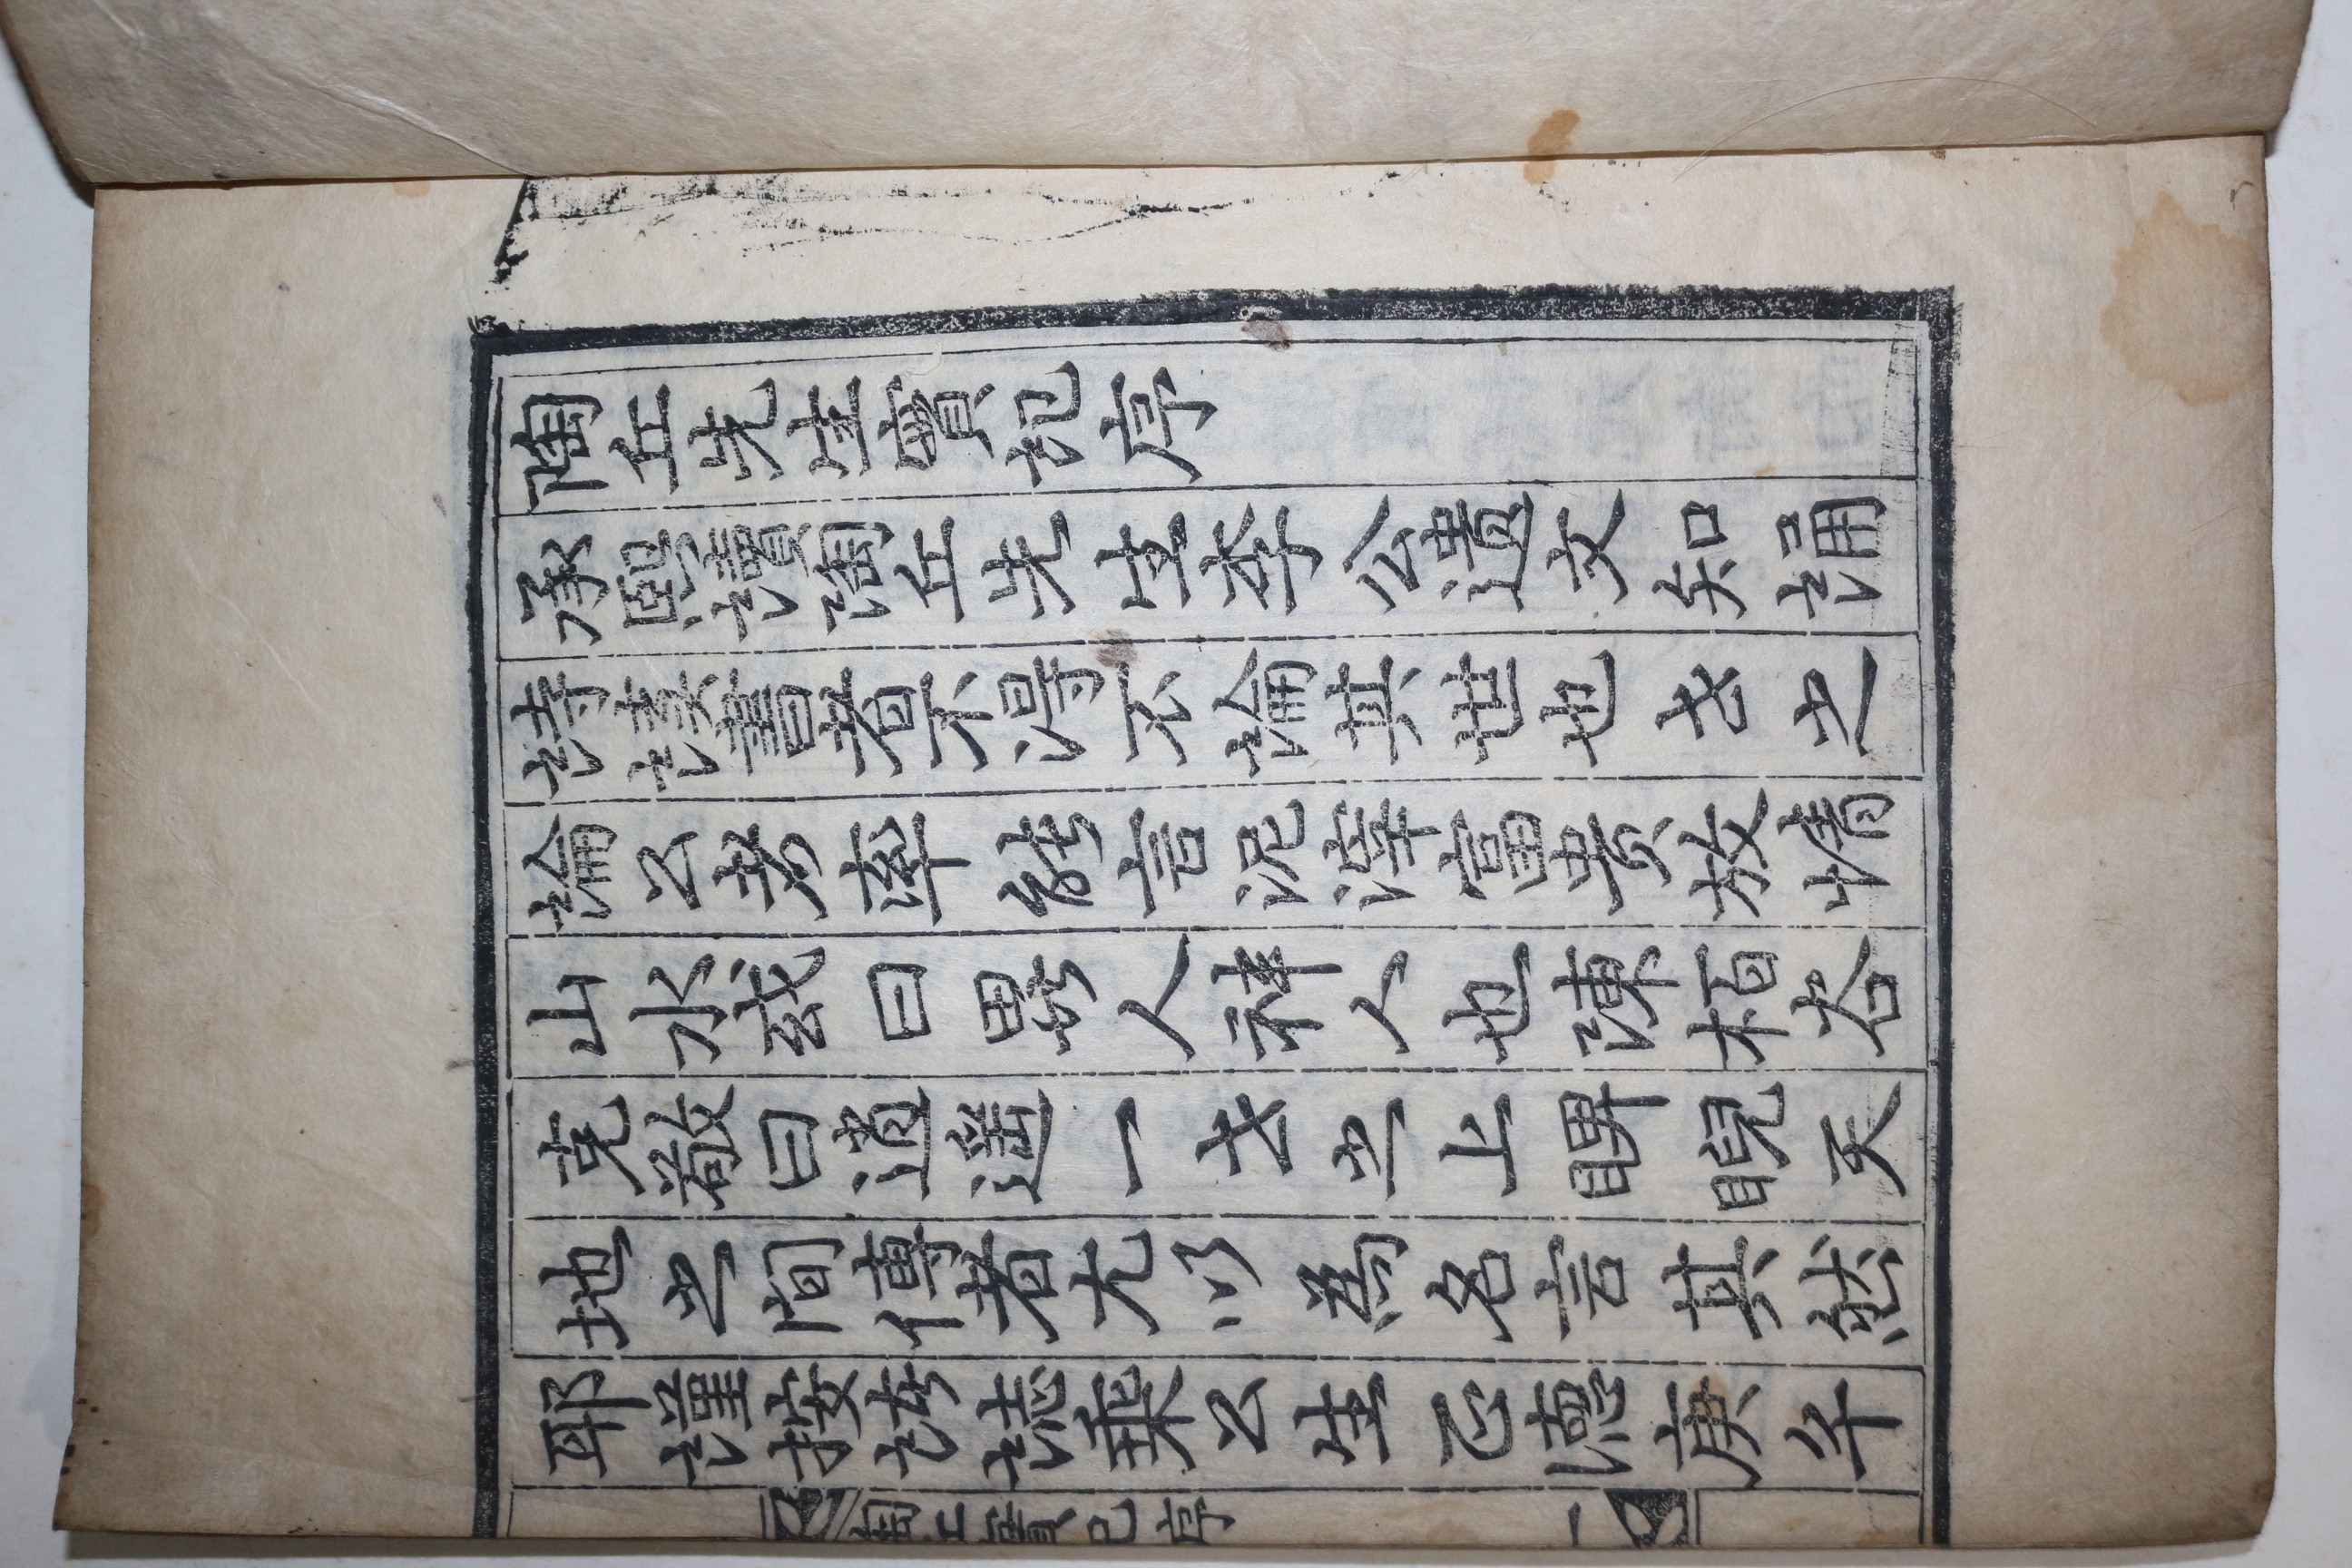 陶丘先生實記序
承熙讀陶丘先生李公遺文知誦
詩讀書者不得不論其世也世之
論公者率能言泥滓富貴放情
山水或曰異人神人也陳栢谷
克敬曰逍遥一世之上睥睨天
地之間傳者尤以為名言其然
耶謹按誌乘公生正德庚午
陶丘實記序
一